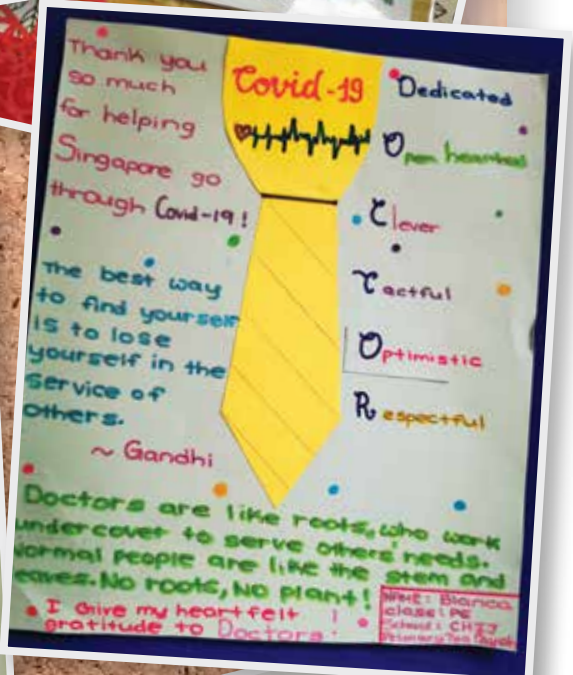 Thank you
so much
for helping
Singapore go
through Covid-19!
The best way
to find yourself
is to lose
yourself in the
service of
others.
~ Gandhi
Covid-19
Dedicated
Open hearted
Clever
Tactful
Optimistic
Respectful
Doctors are like roots, who work
undercover to serve others' needs.
Normal people are like the stem and
leaves. No roots, No plant!
I give my heartfelt
gratitude to Doctors!
NAME: Bianca
class: P6
School: CHIJ
Primary Toa Payoh